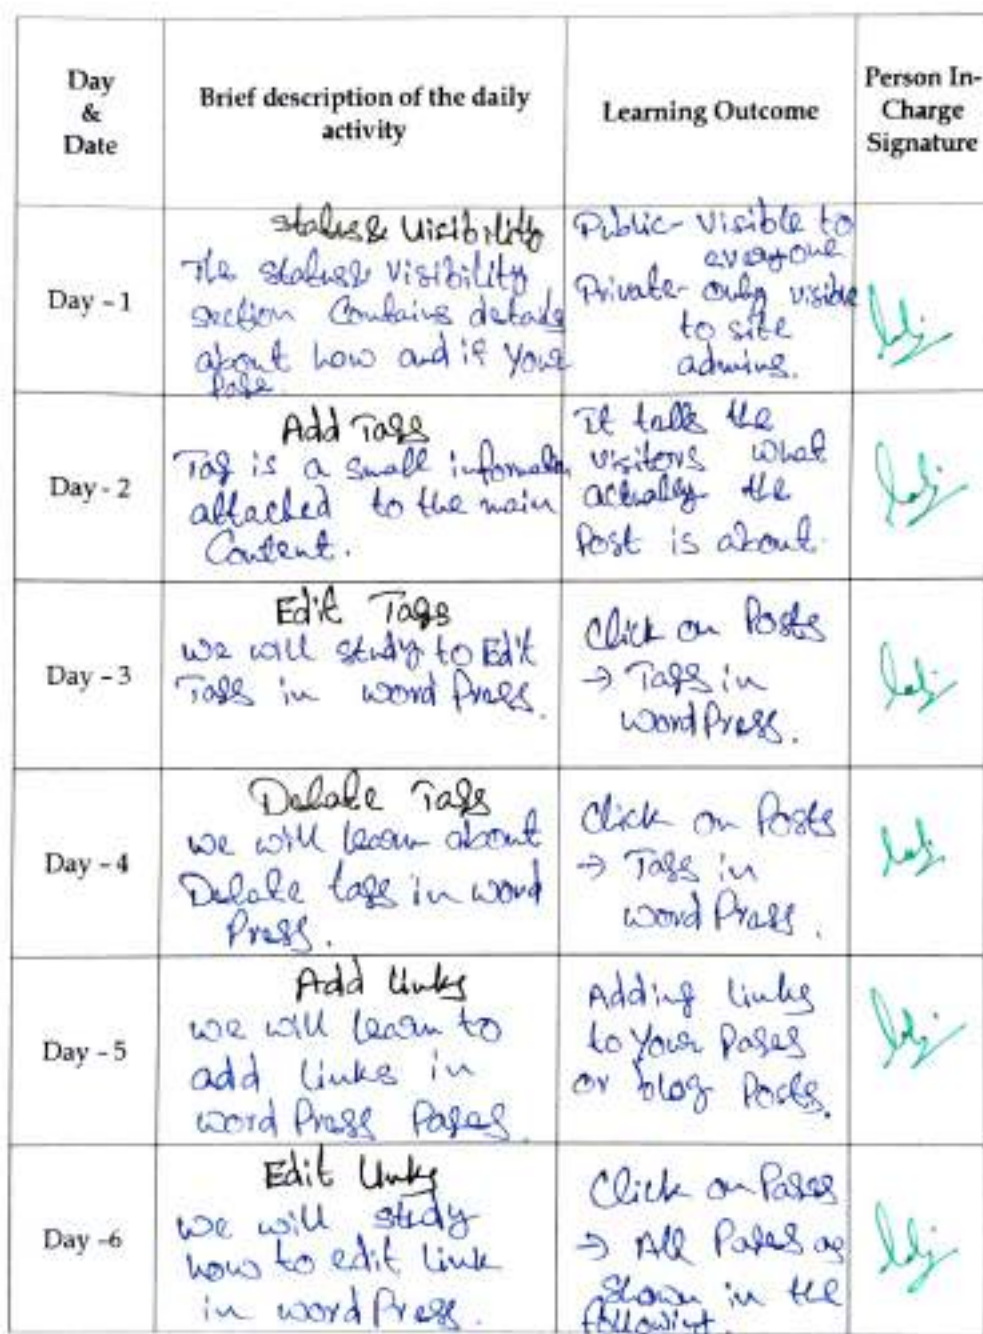 Day
&
Date
Brief description of the daily
activity
Learning Outcome
Person In-
Charge
Signature
Day - 1
Status & Visibility
The status & visibility
section Contains details
about how and if Your
Page.
Public - Visible to
everyone
Private - only visible
to site
admins.
Day - 2
Add Tags
Tag is a small information
attached to the main
Content.
It tells the
visitors what
actually the
Post is about.
Day - 3
Edit Tags
we will study to Edit
Tags in word Press.
Click on Posts
→ Tags in
word Press.
Day - 4
Delate Tags
we will learn about
Delate tags in word
Press.
Click on Posts
→ Tags in
word Press.
Day - 5
Add Links
we will learn to
add links in
word Press Pages.
Adding links
to Your Pages
or blog Posts.
Day -6
Edit Links
we will study
how to edit link
in word Press.
Click on Pages
→ All Pages as
Shown in the
following.